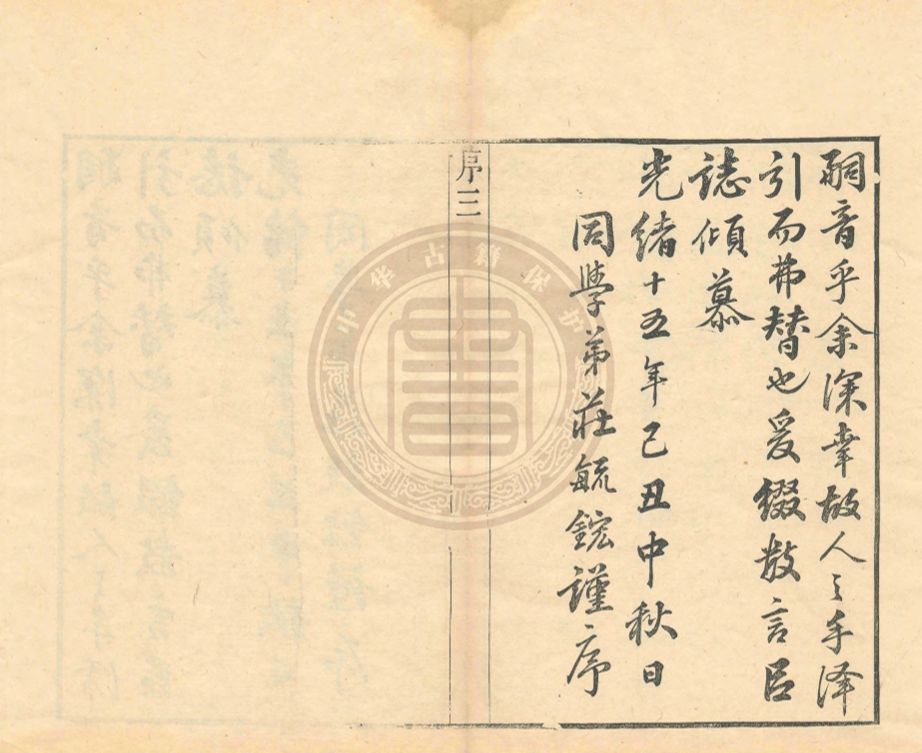 嗣音乎余深幸故人之手澤
引而弗替也爰綴數言㠯
誌傾慕
光緒十五年己丑中秋日
同學弟莊毓鋐謹序
序三
中华古籍保护